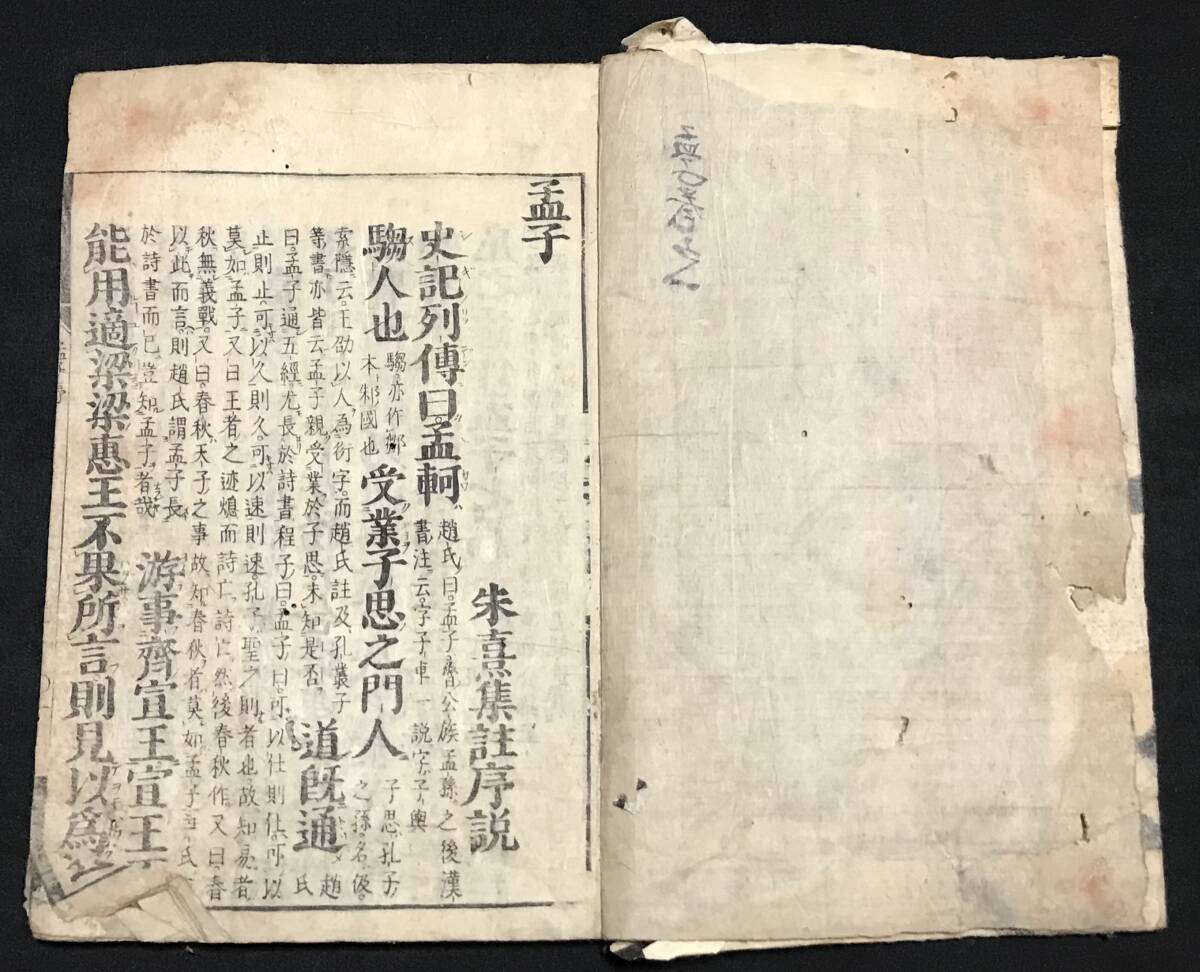 孟子
朱熹集註序説
史記列傳曰。孟軻
趙氏曰。孟子魯公族孟孫之後。漢
書注云。字子車。一説字子輿
騶人也
騶亦作鄒
本邾國也
受業子思之門人
子思孔子
之孫。名伋。
索隱云。王劭以人爲衍字。而趙氏註及孔叢子
等書亦皆云孟子親受業於子思。未知是否。
道既通
趙氏
曰。孟子通五經。尤長於詩書。程子曰。孟子曰。可以仕則仕。可以
止則止。可以久則久。可以速則速。孔子聖之時者也。故知易者
莫如孟子。又曰。王者之迹熄而詩亡。詩亡。然後春秋作。又曰。春
秋無義戰。又曰。春秋天子之事。故知春秋者。莫如孟子。尹氏
以此而言。則趙氏謂孟子長
於詩書而已。豈知孟子者哉
游事齊宣王宣王不
能用適梁梁惠王不果所言則見以爲